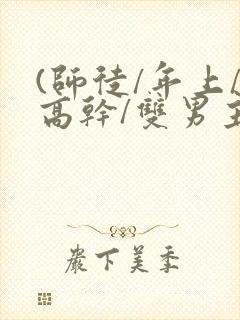 (師徒/年上/
高幹/雙男主
嚴下美季